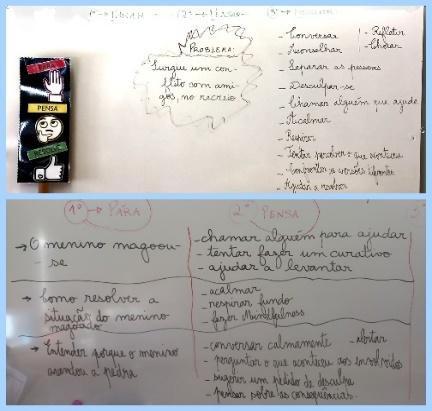 1º → PARA
2º → PENSA
3º
PROBLEMA:
Surgiu um con-
flito com ami-
gos, no recreio
PENSA
- Conversar
- Aconselhar
- Separar as pessoas
- Desculpar-se
- Chamar alguém que ajude
- Acalmar
- Respirar
- Tentar perceber o que aconteceu
- Confrontar as versões diferentes
- Ajudar a resolver
- Refletir
- Chorar
1º → PARA
2º PENSA
3º
→ O menino magoou-
- se
- chamar alguém para ajudar
- tentar fazer um curativo
- ajudar a levantar
→ Como resolver a
situação do menino
magoado
- acalmar
- respirar fundo
- fazer Mindfulness
→ Entender porque o menino
mandou a pedra
- conversar calmamente
- perguntar o que aconteceu aos envolvidos
- sugerir um pedido de desculpa
- pensar sobre as consequências